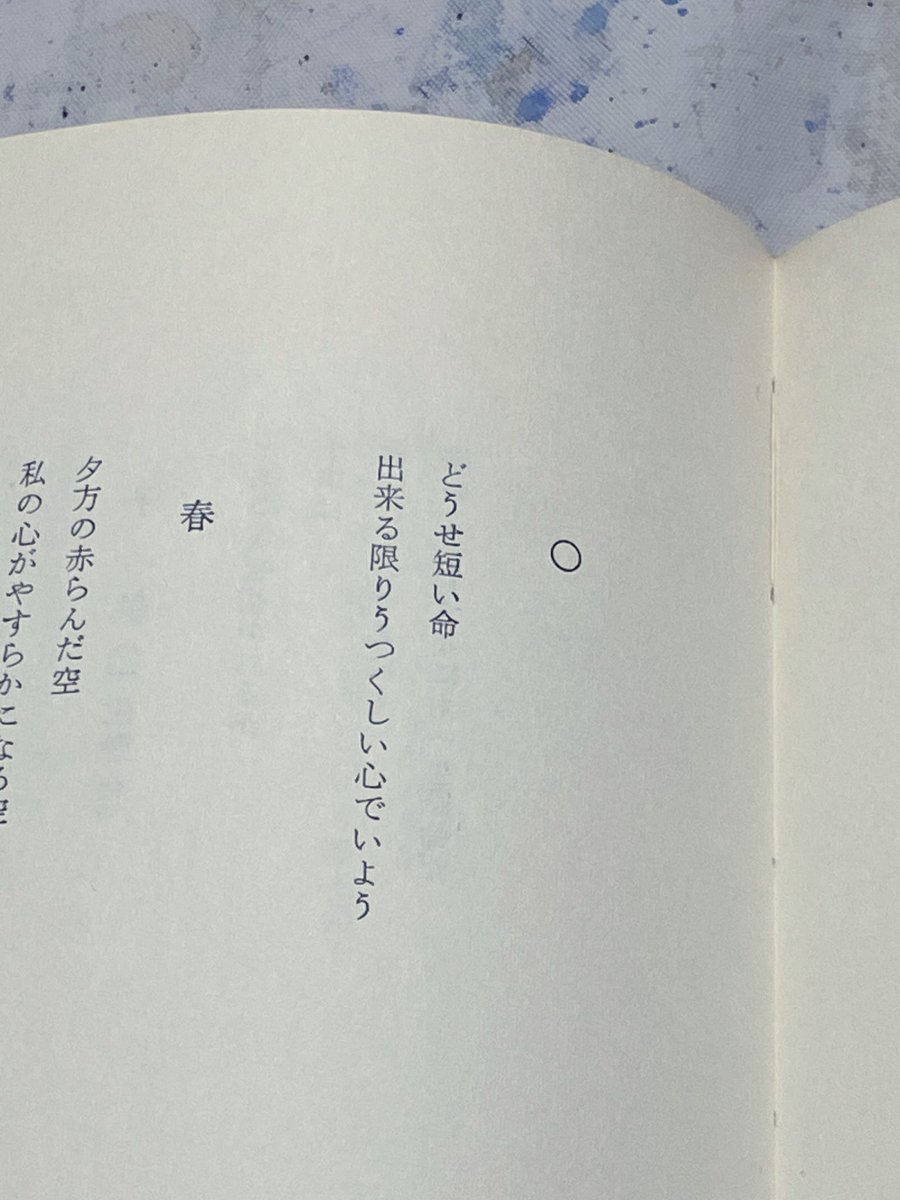 ○
どうせ短い命
出来る限りうつくしい心でいよう
春
夕方の赤らんだ空
私の心がやすらかになる空